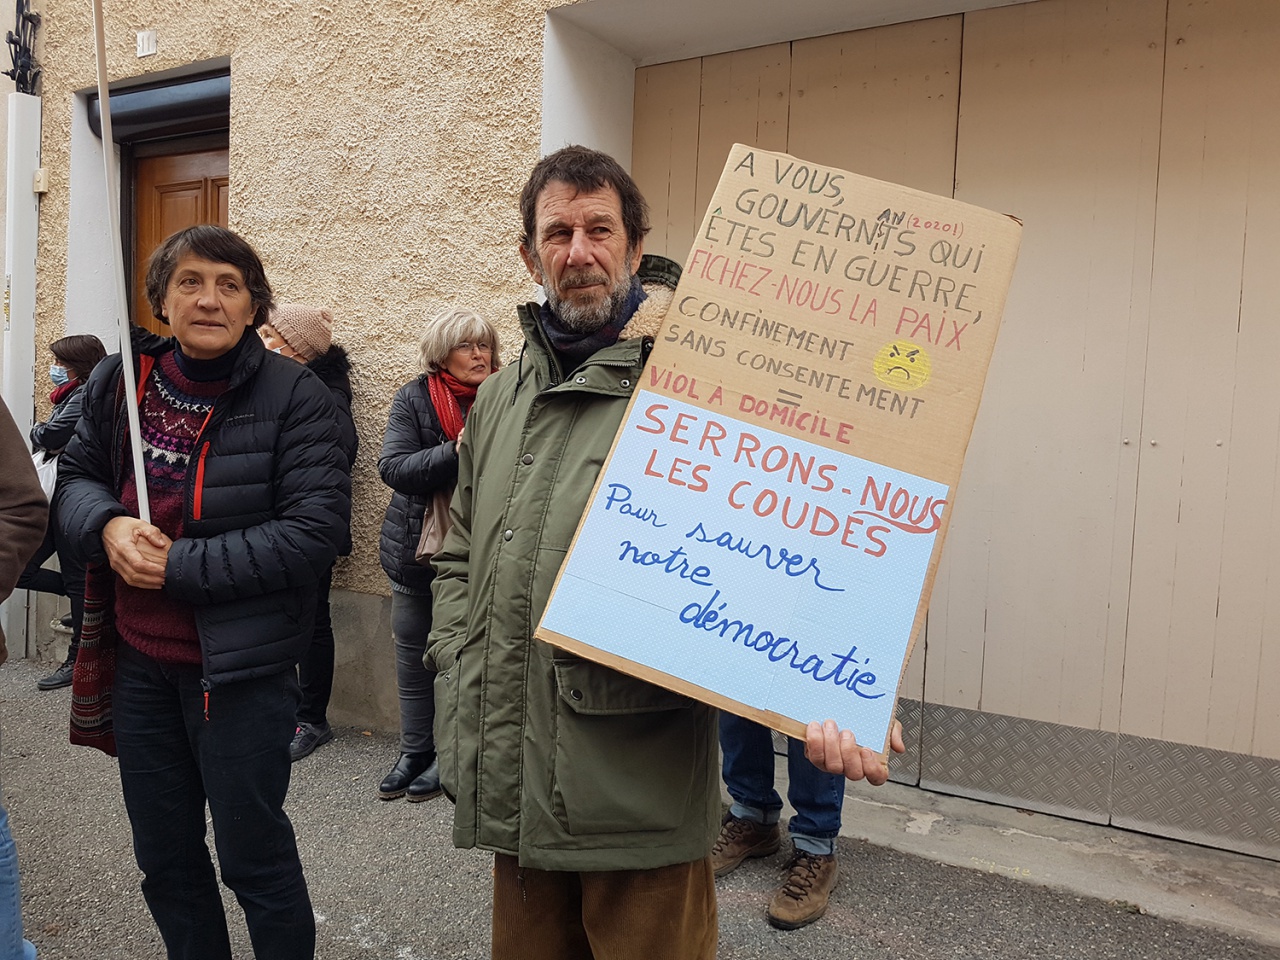 A VOUS,
GOUVERN^TS QUI
AN (2020!)
ÊTES EN GUERRE,
FICHEZ-NOUS LA PAIX
CONFINEMENT
SANS CONSENTEMENT
=
VIOL À DOMICILE
SERRONS-NOUS
LES COUDES
Pour sauver
notre
démocratie